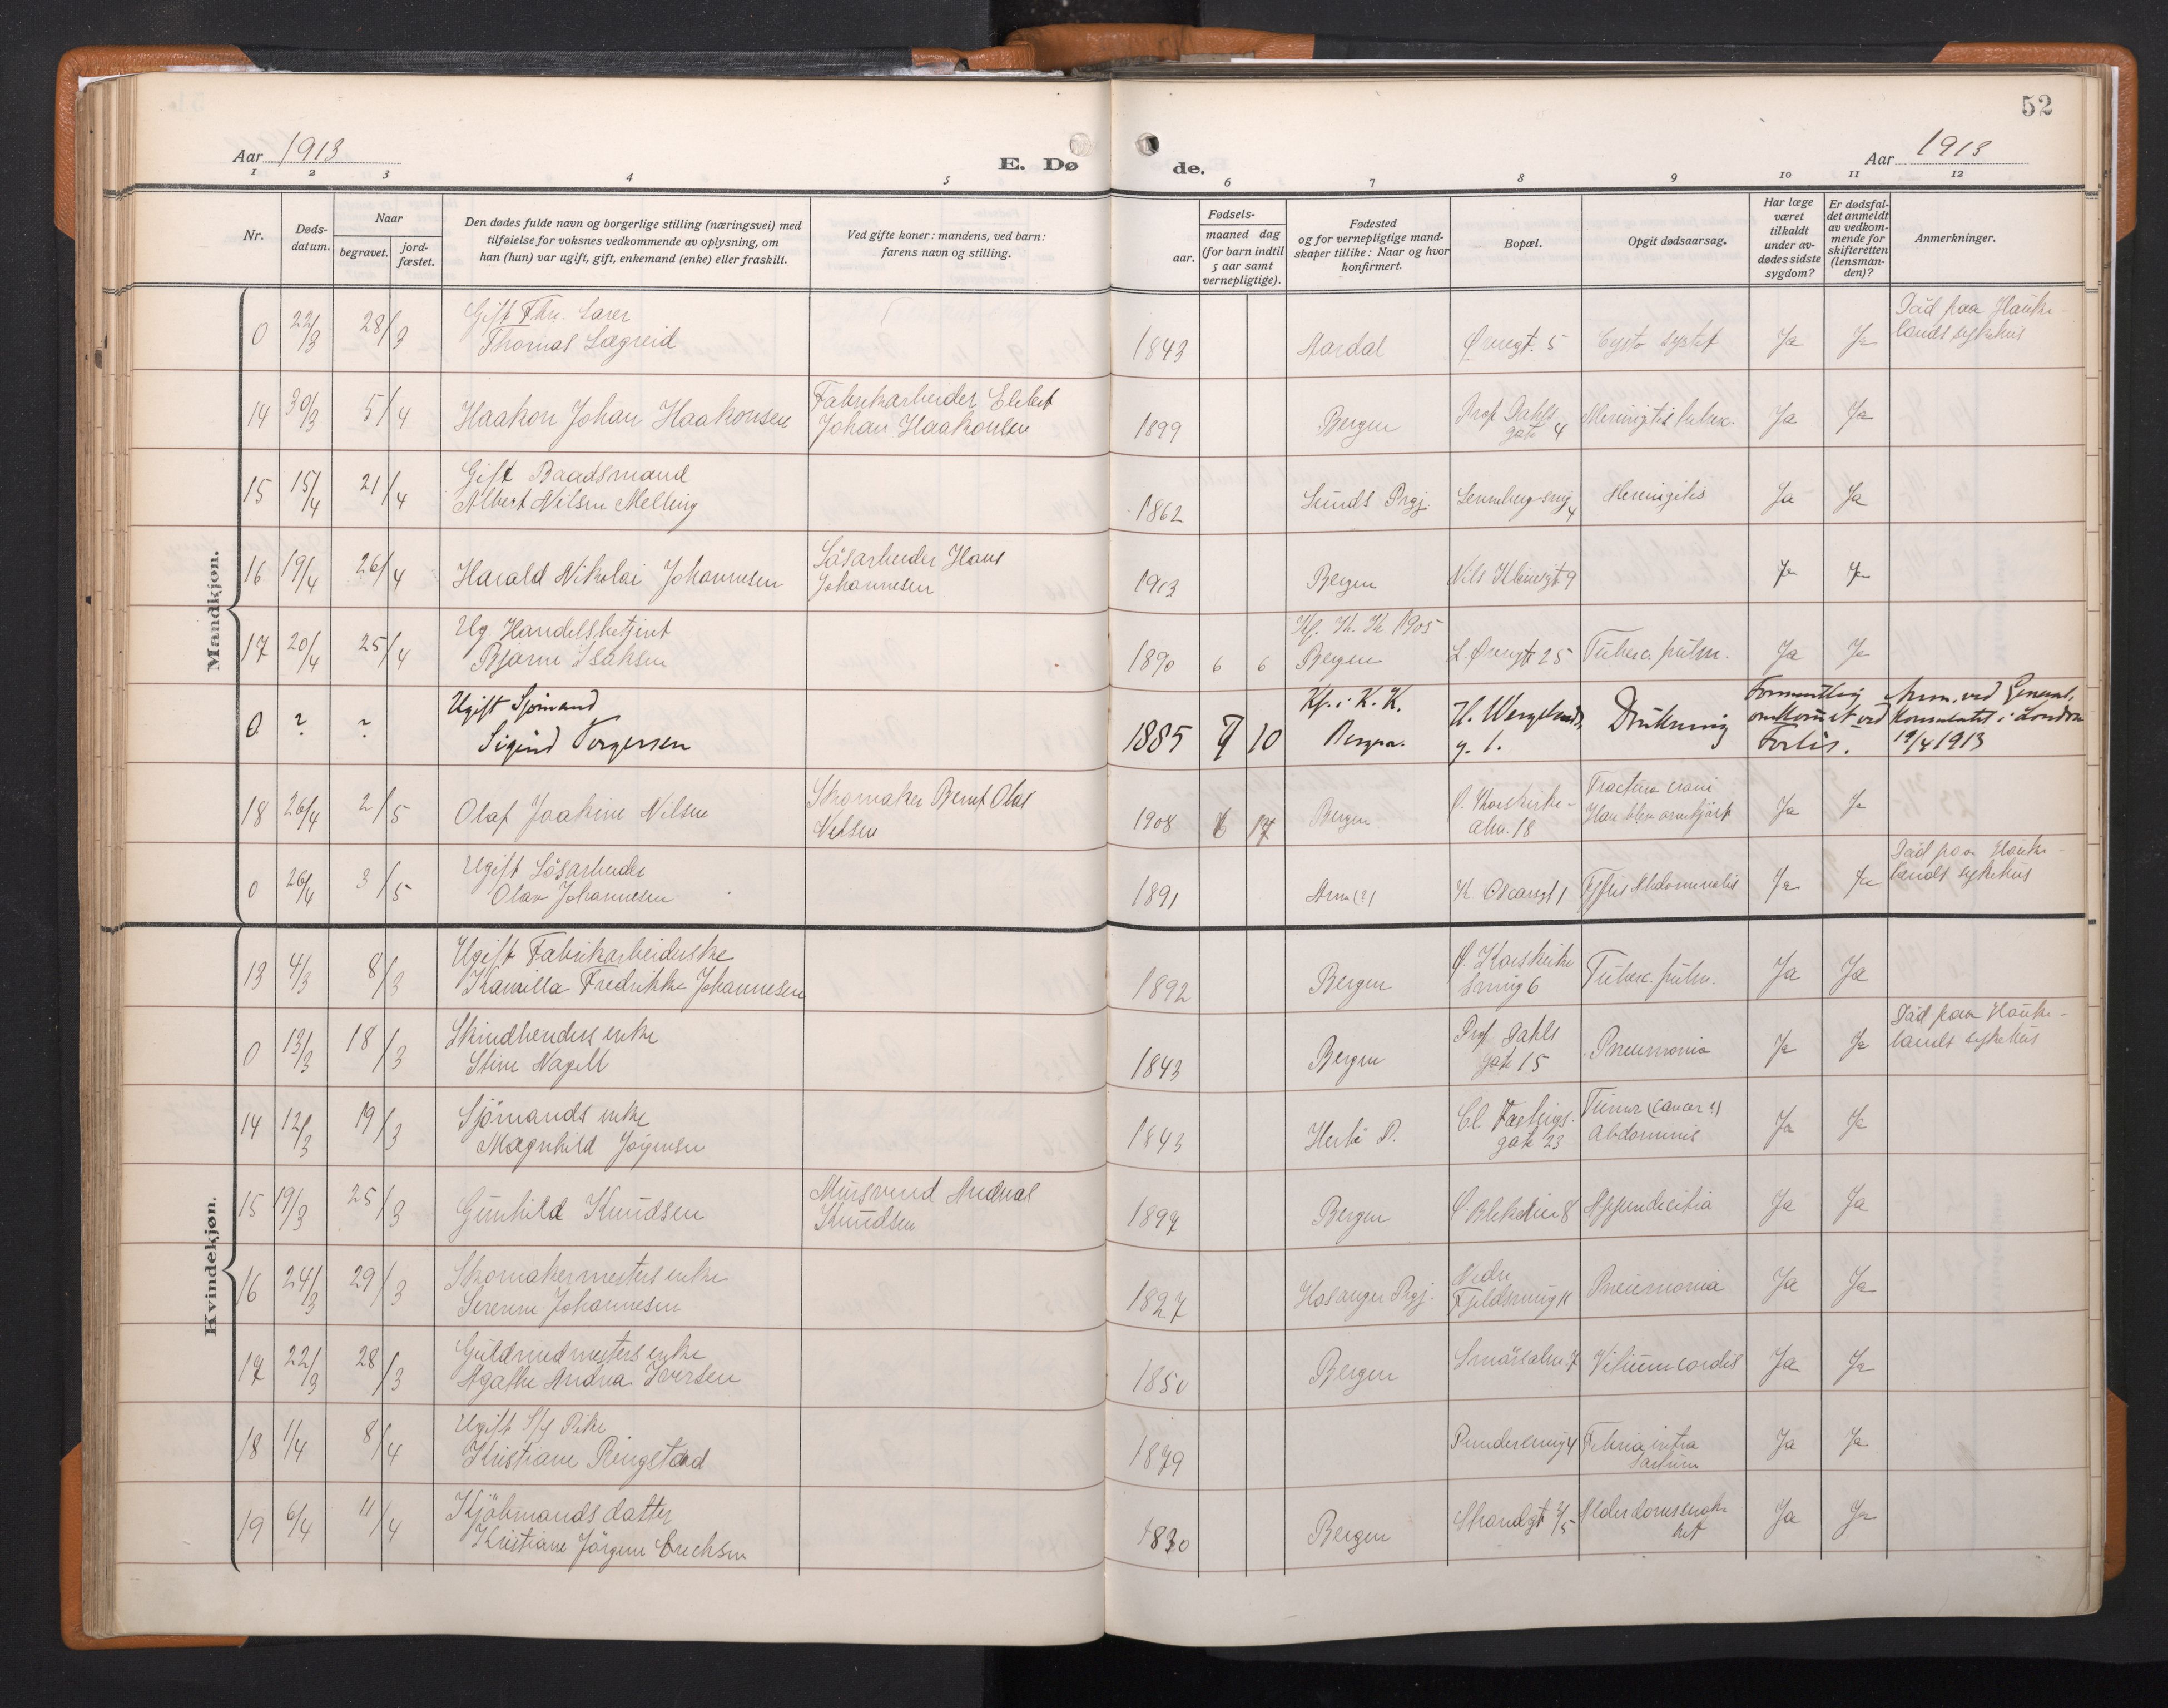 52
Aar 1913
E. Dø
de.
Aar 1913
1 2 3 4 5 6 7 8 9 10 11 12
Nr.
Døds-
datum.
Naar
begravet.
jord-
fæstet.
Den dødes fulde navn og borgerlige stilling (næringsvei) med
tilføielse for voksnes vedkommende av oplysning, om
han (hun) var ugift, gift, enkemand (enke) eller fraskilt.
Ved gifte koner: mandens, ved barn:
farens navn og stilling.
Fødsels-
aar.
maaned dag
(for barn indtil
5 aar samt
vernepligtige).
Fødested
og for vernepligtige mand-
skaper tillike: Naar og hvor
konfirmert.
Bopæl.
Opgit dødsaarsag.
Har læge
været
tilkaldt
under av-
dødes sidste
sygdom?
Er dødsfal-
det anmeldt
av vedkom-
mende for
skifteretten
(lensman-
den)?
Anmerkninger.
Mandkjøn.
0 22/3 28/3 Gift Fhv.
Thomas Lægreid
1843 Aardal Øvregt. 5 Ja Ja
Død paa Hauke-
lands sykehus
14 30/3 5/4 Haakon Johan Haakonsen
Fabrikarbeider
Johan Haakonsen
1899 Bergen Prof Dahls
gate 4
Meningitis tuberc. Ja Ja
15 15/4 21/4 Gift Baadsmand
Albert Nilsen Melling
1862 Sunds Prgj. 4
Meningitis Ja Ja
16 19/4 26/4 Harald Nikolai Johannesen
Løsarbeider Hans
Johannesen
1913 Bergen Nils Klimsgt 9 Ja Ja
17 20/4 25/4 Ug. Handelsbetjent
Bjarne Isaksen
1890 6 6 Kf. K. K 1905
Bergen L. Øvregt 25 Tuberc. pulm. Ja Ja
0 ? ? Ugift Sjømand
Sigurd Torgersen
1885 7 10 Kf. i K. K.
Bergen. H. Wergelands
g. 1.
Drukning
Formentlig
omkommet ved
Forlis.
Anm. ved General-
konsulatet i London
19/4 1913
18 26/4 2/5 Olaf Joakim Nilsen
Skomaker Bernt Olai
Nilsen
1908 6 17 Bergen Ø. Korskirke-
alm. 18
Fractura cranii
Han blev overkjørt Ja Ja
0 26/4 3/5 Ugift Løsarbeider
Olav Johannesen
1891 Arna (?) K. Oscarsgt 1 Tyfus Abdominalis Ja Ja
Død paa Hauke-
lands sykehus
Kvindekjøn.
13 4/3 8/3 Ugift Fabrikarbeiderske
Kamilla Fredrikke Johannesen
1892 Bergen Ø. Korskirke
smug 6
Tuberc. pulm. Ja Ja
0 13/3 18/3 Skindbereders enke
Stine Nagell
1843 Bergen Prof Dahls
gate 15
Pneumonia Ja Ja
Død paa Hauke-
lands sykehus
14 12/3 19/3 Sjømands enke
Magnhild Jørgensen
1843 Herlø P. Cl.
gate 23
Tumor (cancer?)
Abdominis Ja Ja
15 19/3 25/3 Gunhild Knudsen
Mursvend Andreas
Knudsen
1897 Bergen Ø. Blekevei 8 Appendicitis Ja Ja
16 24/3 29/3 Skomakermesters enke
Serenne Johannesen
1827 Hosanger Prgj. Nedre
Fjeldsmug 11
Pneumonia Ja Ja
17 22/3 28/3 Guldsmedmesters enke
Agathe Andrea Iversen
1850 Bergen Smørsalm. 7 Vitium cordis Ja Ja
18 1/4 8/4 Ugift S/y Pike
Kristiane Ringstad
1879 Pundersmug 4 Ja Ja
19 6/4 11/4 Kjøbmands datter
Kristiane Jørgine Erichsen
1830 Bergen Strandgt Alderdomssvak-
het Ja Ja